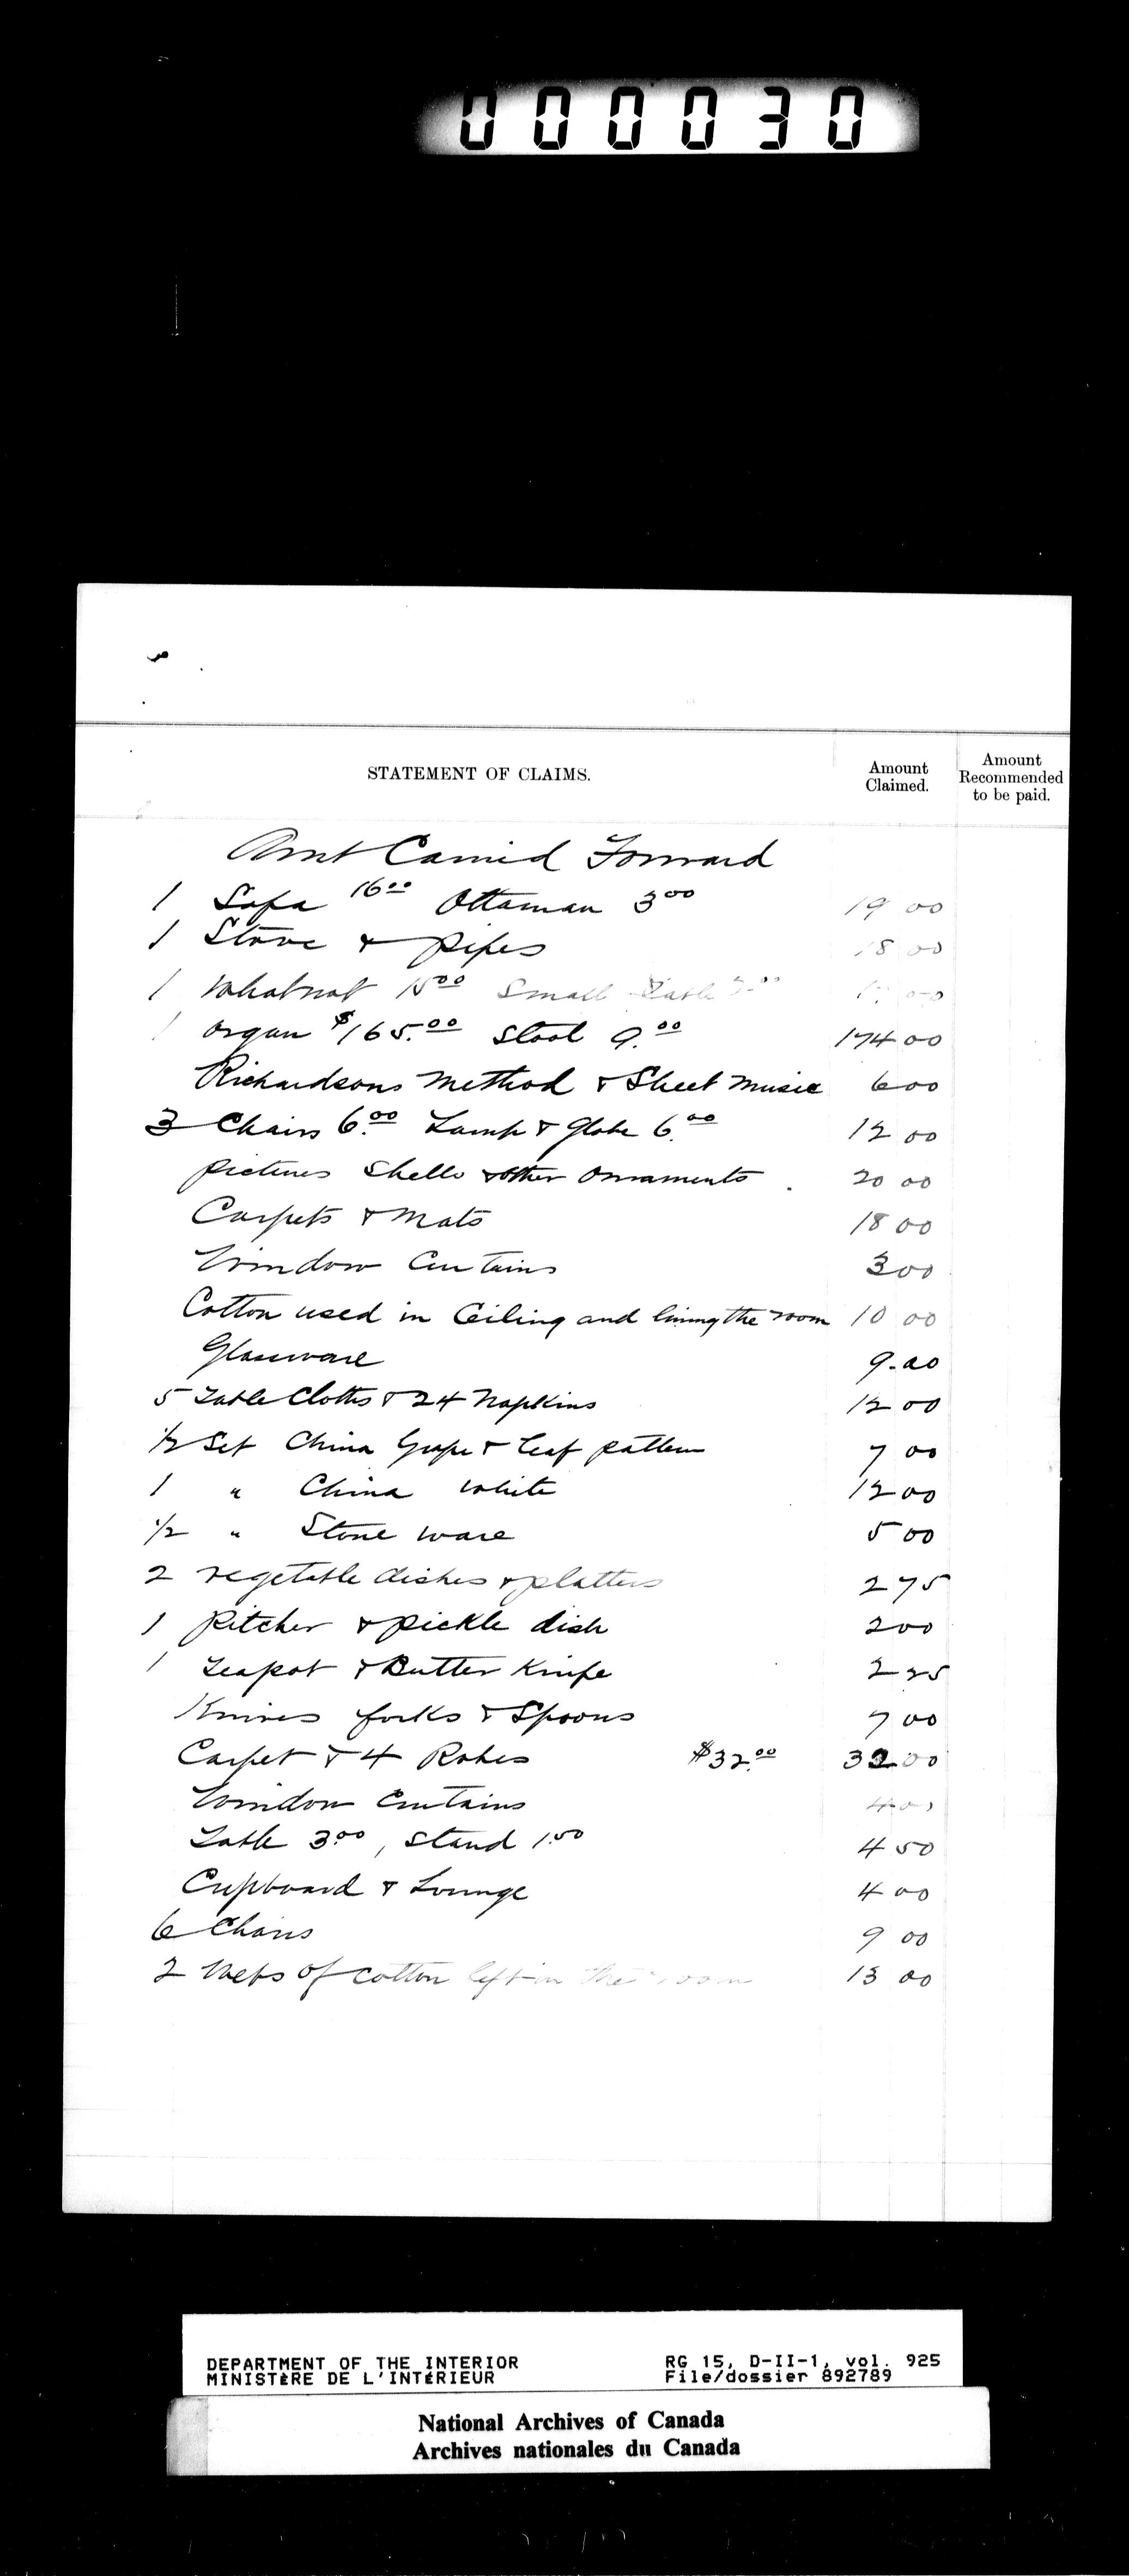 000030
STATEMENT OF CLAIMS.
Amount Claimed.
Amount Recommended to be paid.
Amt Carried Forward
1 Sofa 16 00 Ottaman 3 00 19 00
1 Stove & pipes 18 00
1 Whatnot 15 00 Small Table
1 Organ $165.00 Stool 9.00 174 00
Richardsons Method & Sheet Music 6 00
3 Chairs 6.00 Lamp & Globe 6.00 12 00
pictures Shells & other Ornaments 20 00
Carpets & Mats 18 00
Window Curtains 3 00
Cotton used in Ceiling and lining the room 10 00
Glassware 9.00
5 Table Cloths & 24 Napkins 12 00
1/2 Set China Grape & leaf pattern 7 00
1 " China White 12 00
1/2 " Stone ware 5 00
2 vegetable dishes & platters 2 75
1 Pitcher & pickle dish 2 00
1 Teapot & Butter Knife 2 25
Knives forks & Spoons 7 00
Carpet & 4 Robes $32.00 32 00
Window Curtains 4 00
Table 3.00, Stand 1.50 4 50
Cupboard & Lounge 4 00
6 Chairs 9 00
2 Webs of cotton left in the room 13 00
DEPARTMENT OF THE INTERIOR RG 15, D-II-1, vol. 925
MINISTÈRE DE L'INTÉRIEUR File/dossier 892789
National Archives of Canada
Archives nationales du Canada